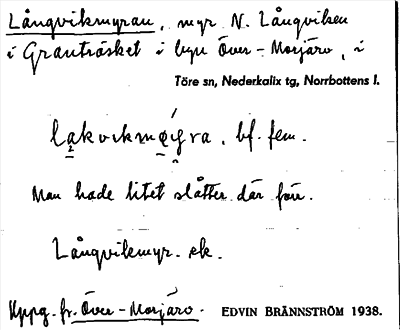 Långvikmyran, myr N. Långviken
i Granträsket i byn Över-Morjärv, i
Töre sn, Nederkalix tg, Norrbottens l.
bf. fem.
Man hade litet slåtter där förr.
Långvikmyr. ek.
Uppg. fr. Över-Morjärv. EDVIN BRÄNNSTRÖM 1938.